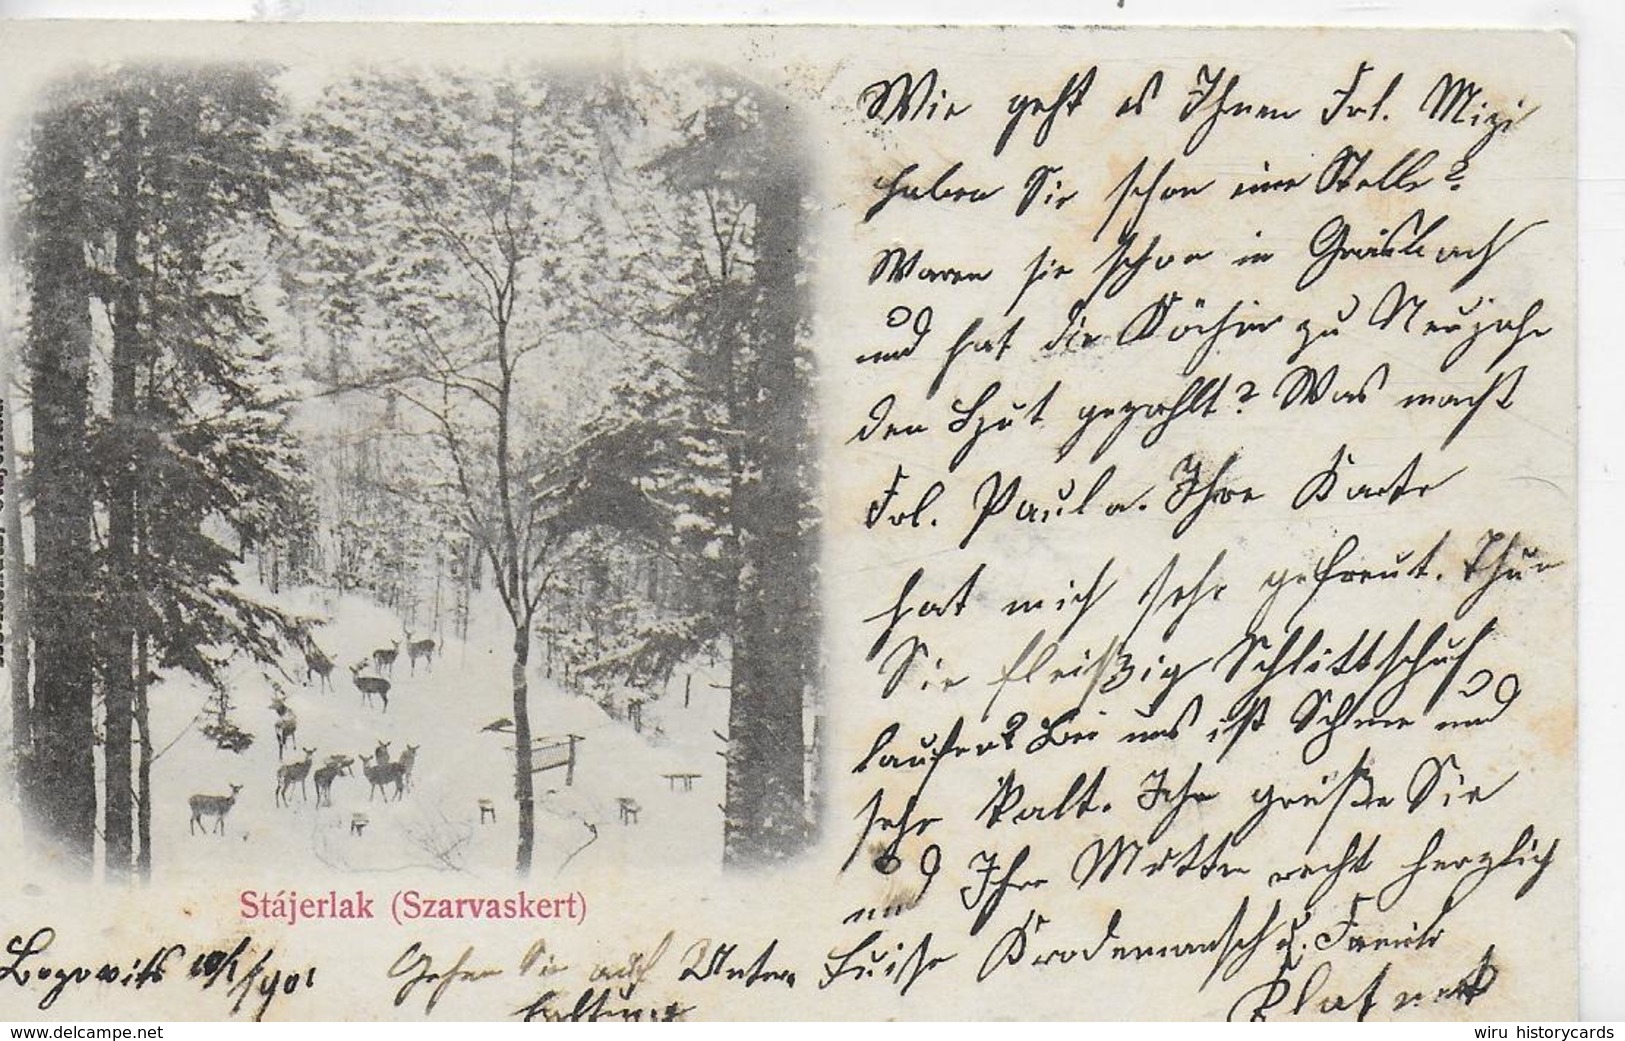 Wie geht es Ihnen Frl. Mizi
haben Sie schon eine Stelle?
Waren sie schon in
und hat die Köchin zu Neujahr
den Hut gezahlt? Was macht
Frl. Paula. Ihre Karte
hat mich sehr gefreut. Thun
Sie fleißig Schlittschuh
laufen? Bei uns ist Schnee und
sehr kalt. Ich grüße Sie
und Ihre Mutter recht herzlich
Luise u. Familie
Stájerlak (Szarvaskert)
Bogovits 10/1 1901
Gehen Sie auf Unter
haltung
wiru historycards
www.delcampe.net